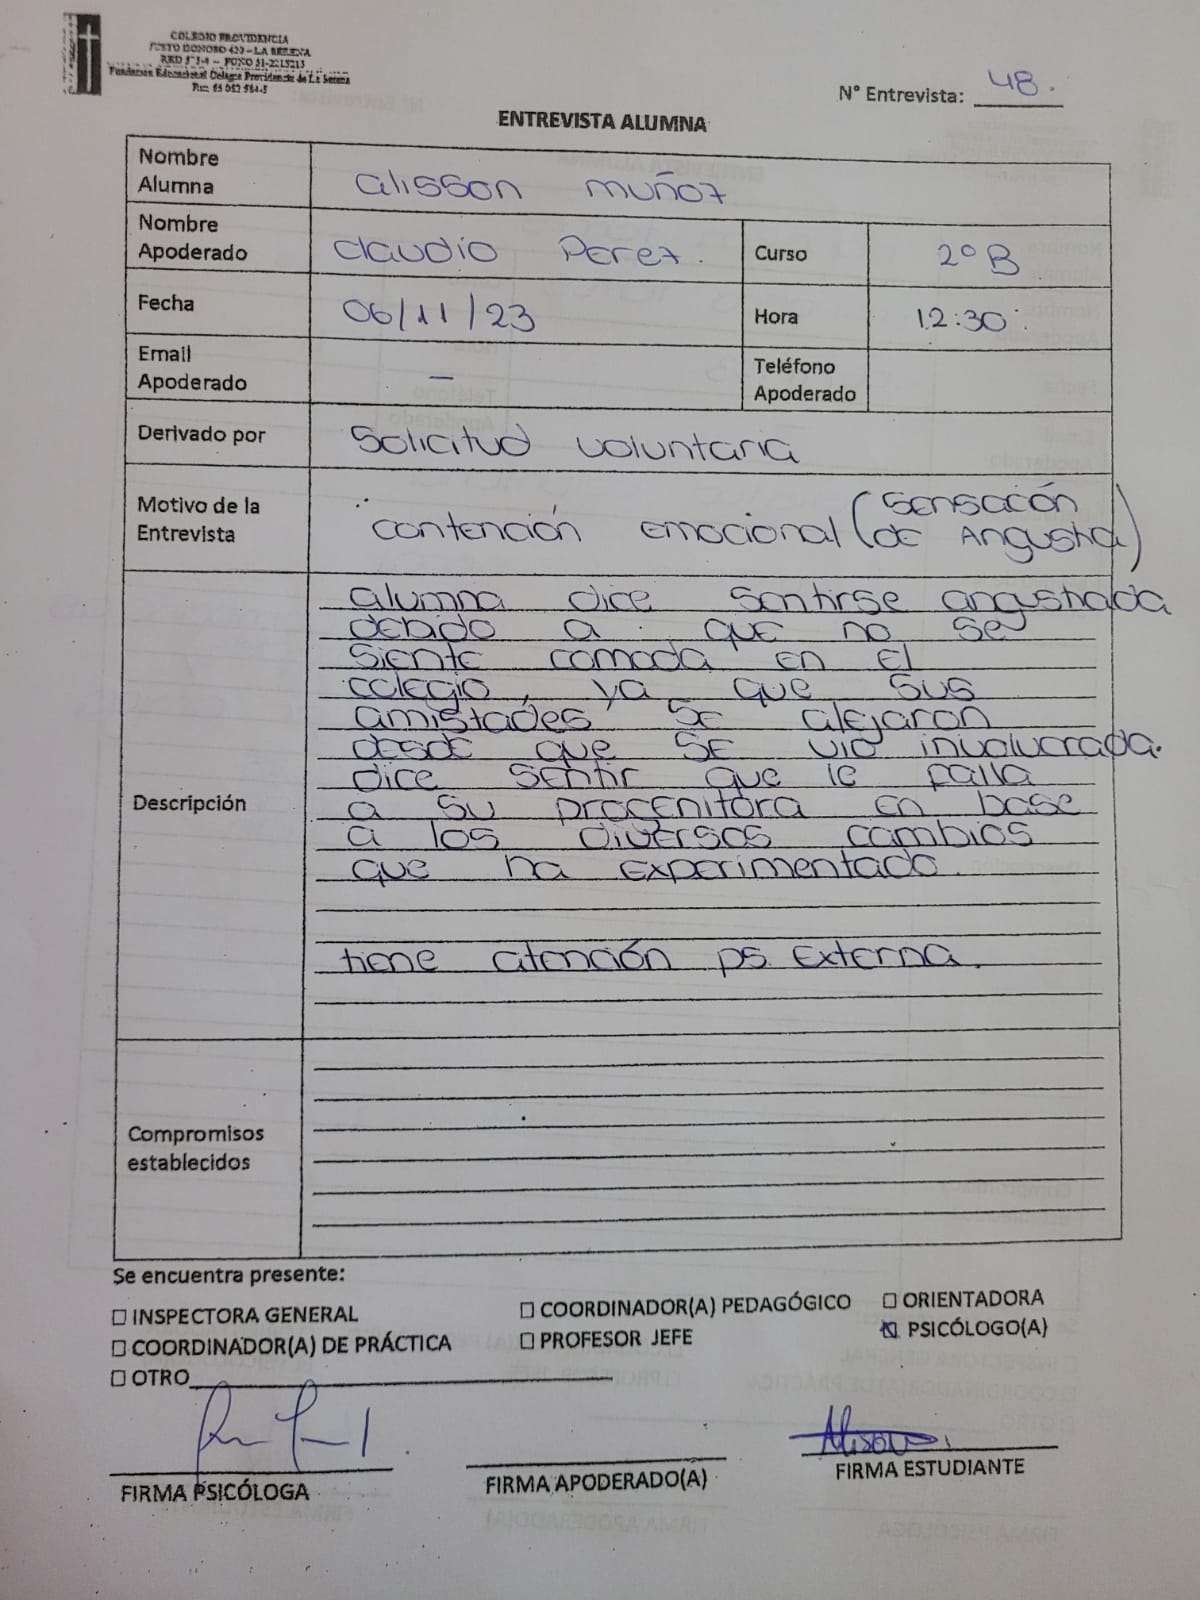 COLEGIO PROVIDENCIA
JUSTO DONOSO 420 – LA SERENA
FONO 51-2215213
Fundación Educacional Colegio Providencia de La Serena
Rut: 65 052 584-5
N° Entrevista: 48.
ENTREVISTA ALUMNA
Nombre Alumna alisson muñoz
Nombre Apoderado claudio Perez. Curso 2°B
Fecha 06/11/23 Hora 12:30.
Email Apoderado — Teléfono Apoderado
Derivado por Solicitud voluntaria
Motivo de la Entrevista contención emocional (sensacón de Angustia)
Descripción
alumna dice sentirse angustiada
debido a que no se
siente comoda en el
colegio, ya que sus
amistades se alejaron
desde que se vio involucrada.
dice sentir que le falla
a su procenitora en base
a los diversos cambios
que ha experimentado.
tiene atención ps. Externa.
Compromisos establecidos
Se encuentra presente:
☐ INSPECTORA GENERAL ☐ COORDINADOR(A) PEDAGÓGICO ☐ ORIENTADORA
☐ COORDINADOR(A) DE PRÁCTICA ☐ PROFESOR JEFE ☒ PSICÓLOGO(A)
☐ OTRO
Alisson
FIRMA PSICÓLOGA FIRMA APODERADO(A) FIRMA ESTUDIANTE